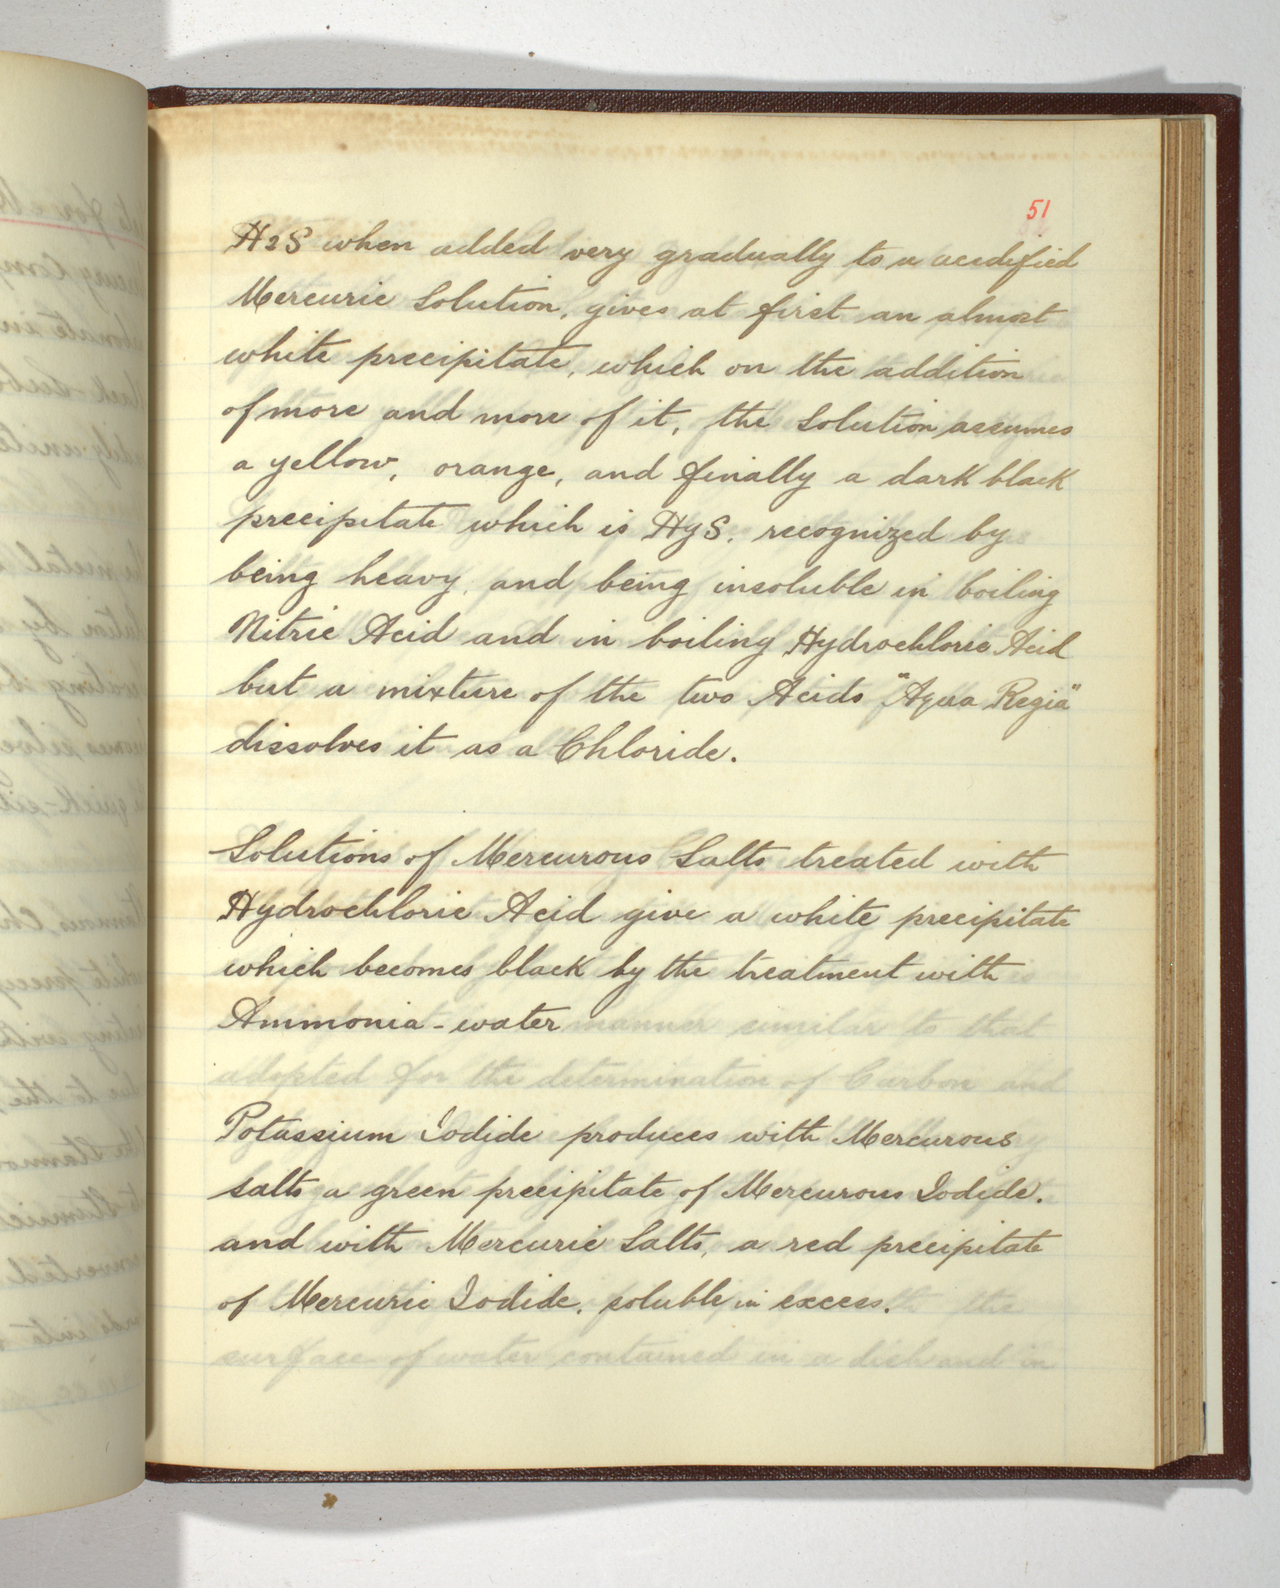 51
H2S when added very gradually to a acidified
Mercuric Solution, gives at first an almost
white precipitate, which on the addition
of more and more of it, the Solution assumes
a yellow, orange, and finally a dark black
precipitate which is HgS. recognized by
being heavy, and being insoluble in boiling
Nitric Acid and in boiling Hydrochloric Acid
but a mixture of the two Acids "Aqua Regia"
dissolves it as a Chloride.
Solutions of Mercurous Salts treated with
Hydrochloric Acid give a white precipitate
which becomes black by the treatment with
Ammonia-water manner similar to that
adopted for the determination of Carbon and
Potassium Iodide produces with Mercurous
salts a green precipitate of Mercurous Iodide.
and with Mercuric Salts, a red precipitate
of Mercuric Iodide. soluble in excess. the
surface of water contained in a dish and in